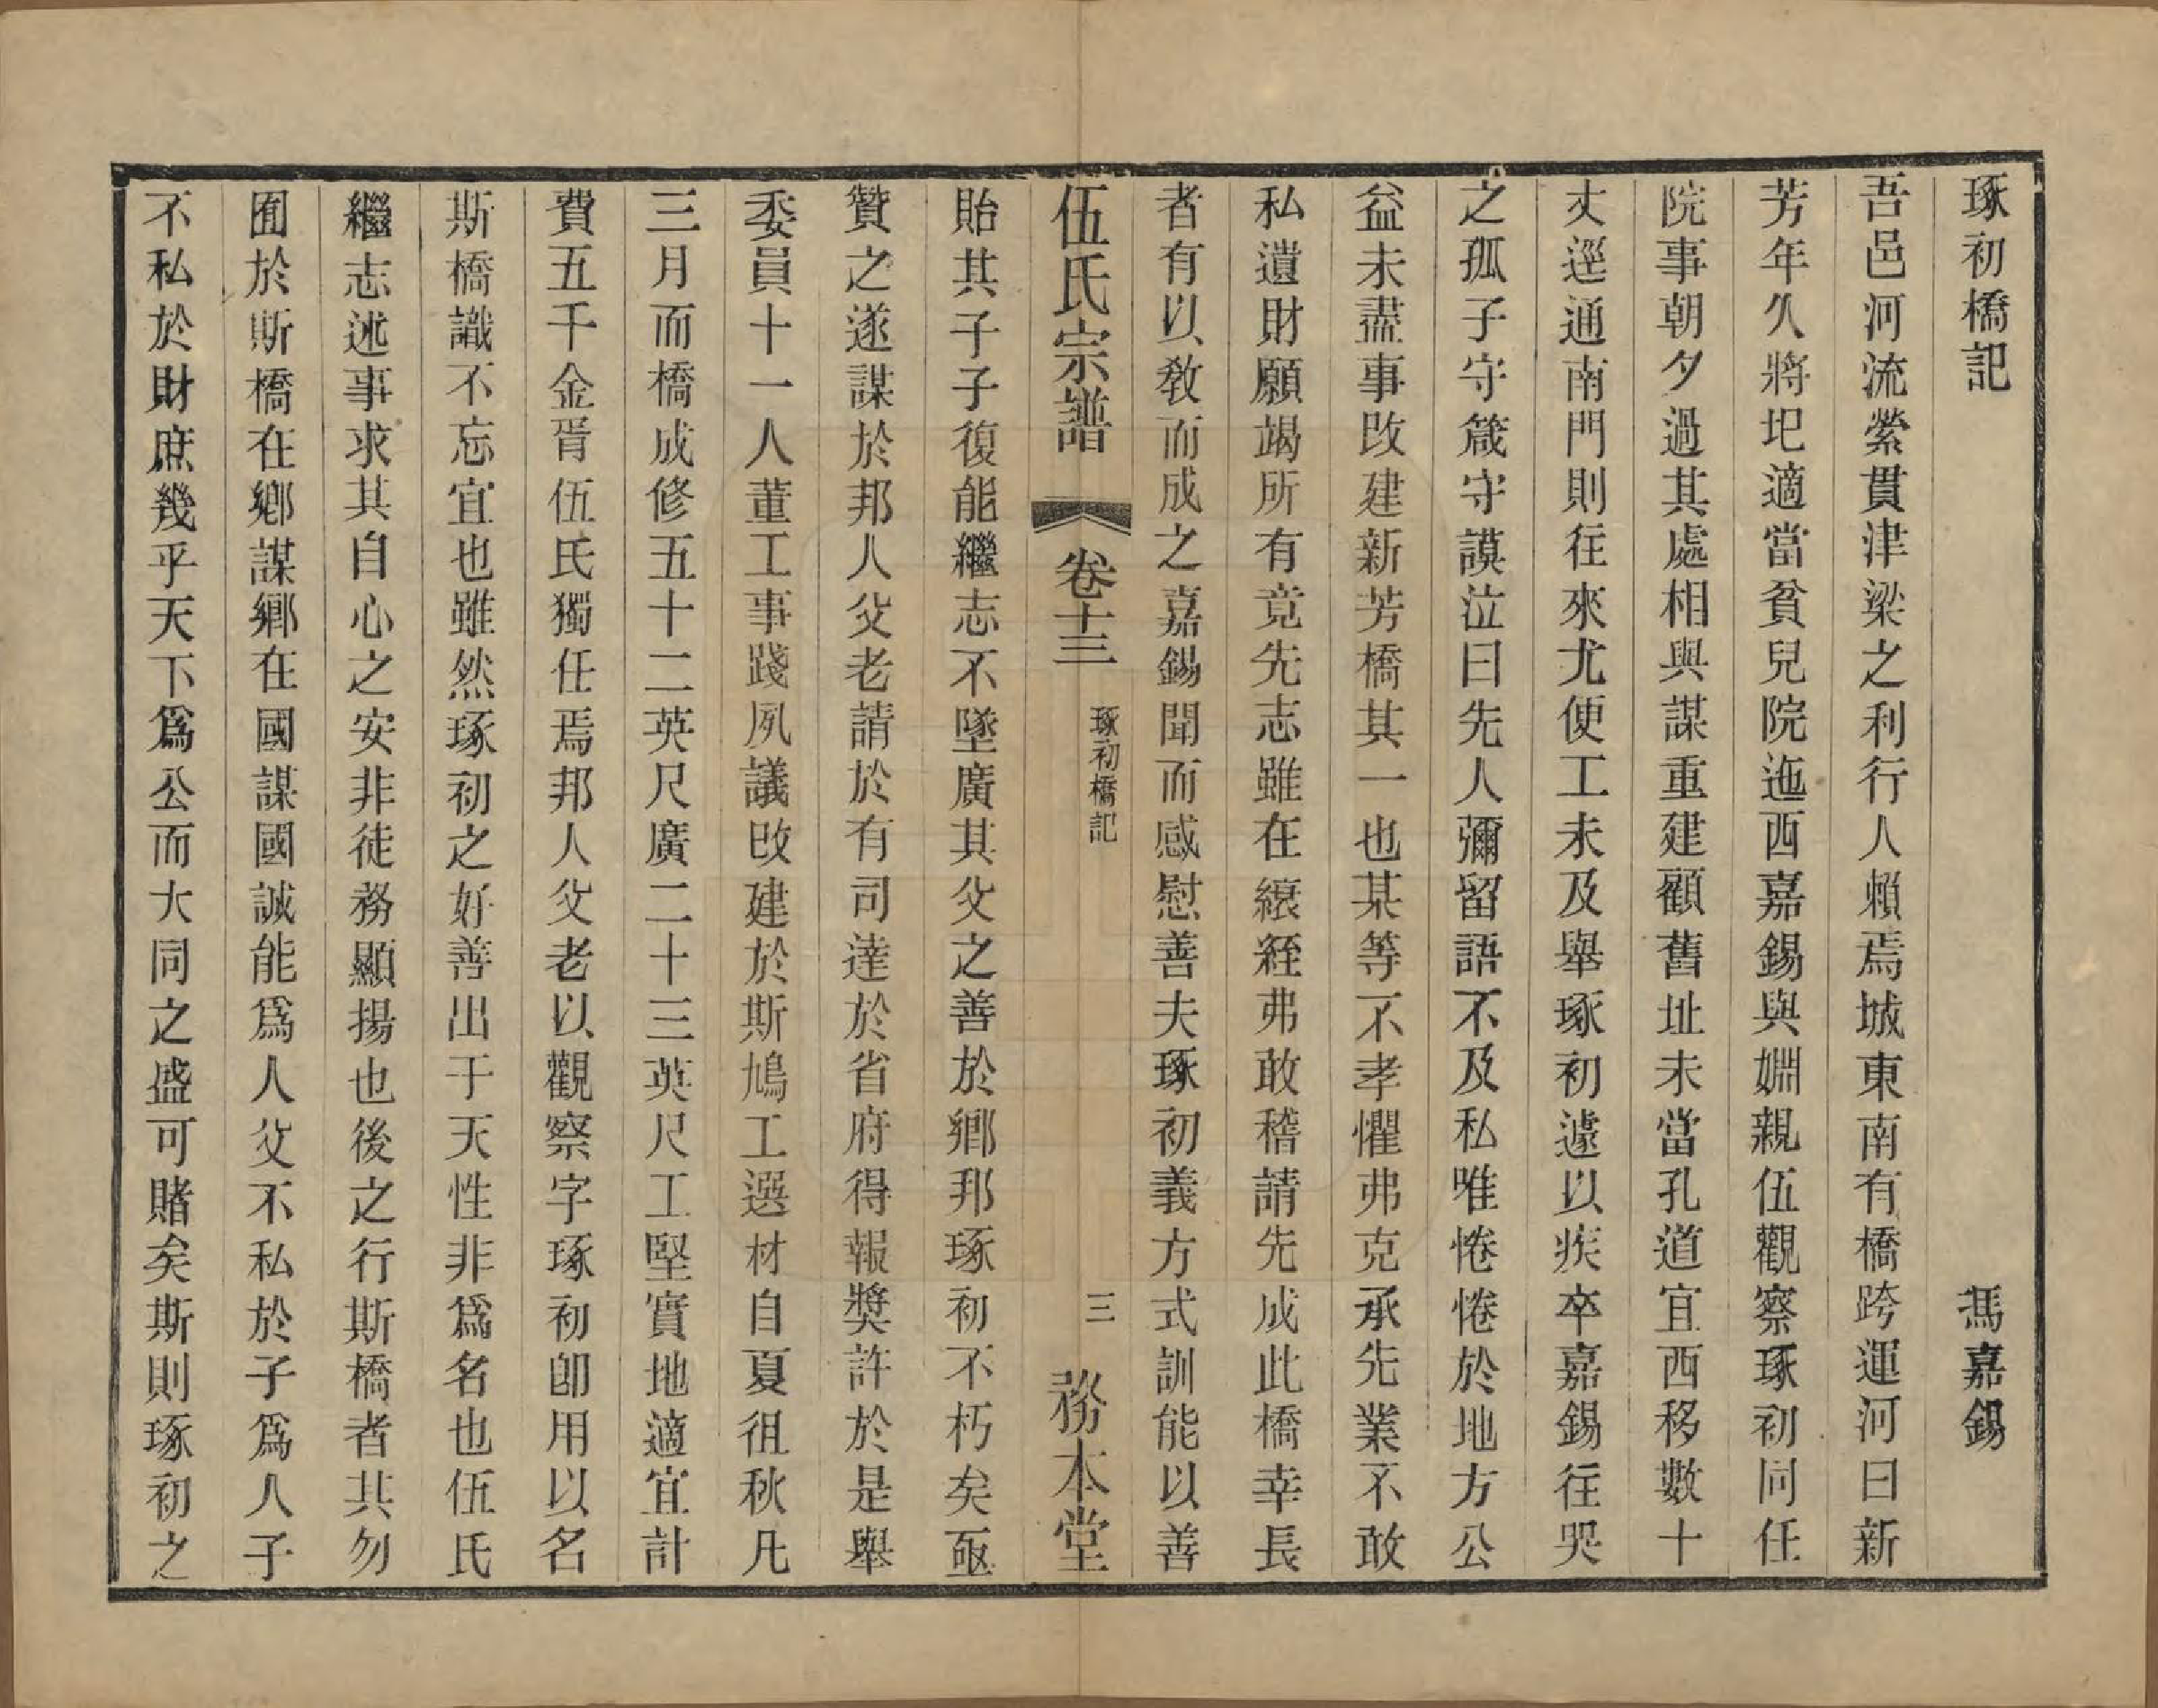 琢初橋記　馮嘉錫
吾邑河流縈貫津梁之利行人賴焉城東南有橋跨運河曰新
芳年久將圯適當貧兒院迤西嘉錫與婣親伍觀察琢初同任
院事朝夕過其處相與謀重建顧舊址未當孔道宜西移數十
丈逕通南門則往來尤便工未及舉琢初遽以疾卒嘉錫往哭
之孤子守箴守謨泣曰先人彌留語不及私唯惓惓於地方公
益未盡事改建新芳橋其一也某等不孝懼弗克承先業不敢
私遺財願竭所有竟先志雖在縗絰弗敢稽請先成此橋幸長
者有以敎而成之嘉錫聞而感慰善夫琢初義方式訓能以善
伍氏宗譜　卷十三　琢初橋記　三　務本堂
貽其子子復能繼志不墜廣其父之善於鄉邦琢初不朽矣亟
贊之遂謀於邦人父老請於有司達於省府得報獎許於是舉
委員十一人董工事踐夙議改建於斯鳩工選材自夏徂秋凡
三月而橋成修五十二英尺廣二十三英尺工堅實地適宜計
費五千金胥伍氏獨任焉邦人父老以觀察字琢初卽用以名
斯橋識不忘宜也雖然琢初之好善出于天性非爲名也伍氏
繼志述事求其自心之安非徒務顯揚也後之行斯橋者其勿
囿於斯橋在鄉謀鄉在國謀國誠能爲人父不私於子爲人子
不私於財庶幾乎天下爲公而大同之盛可賭矣斯則琢初之